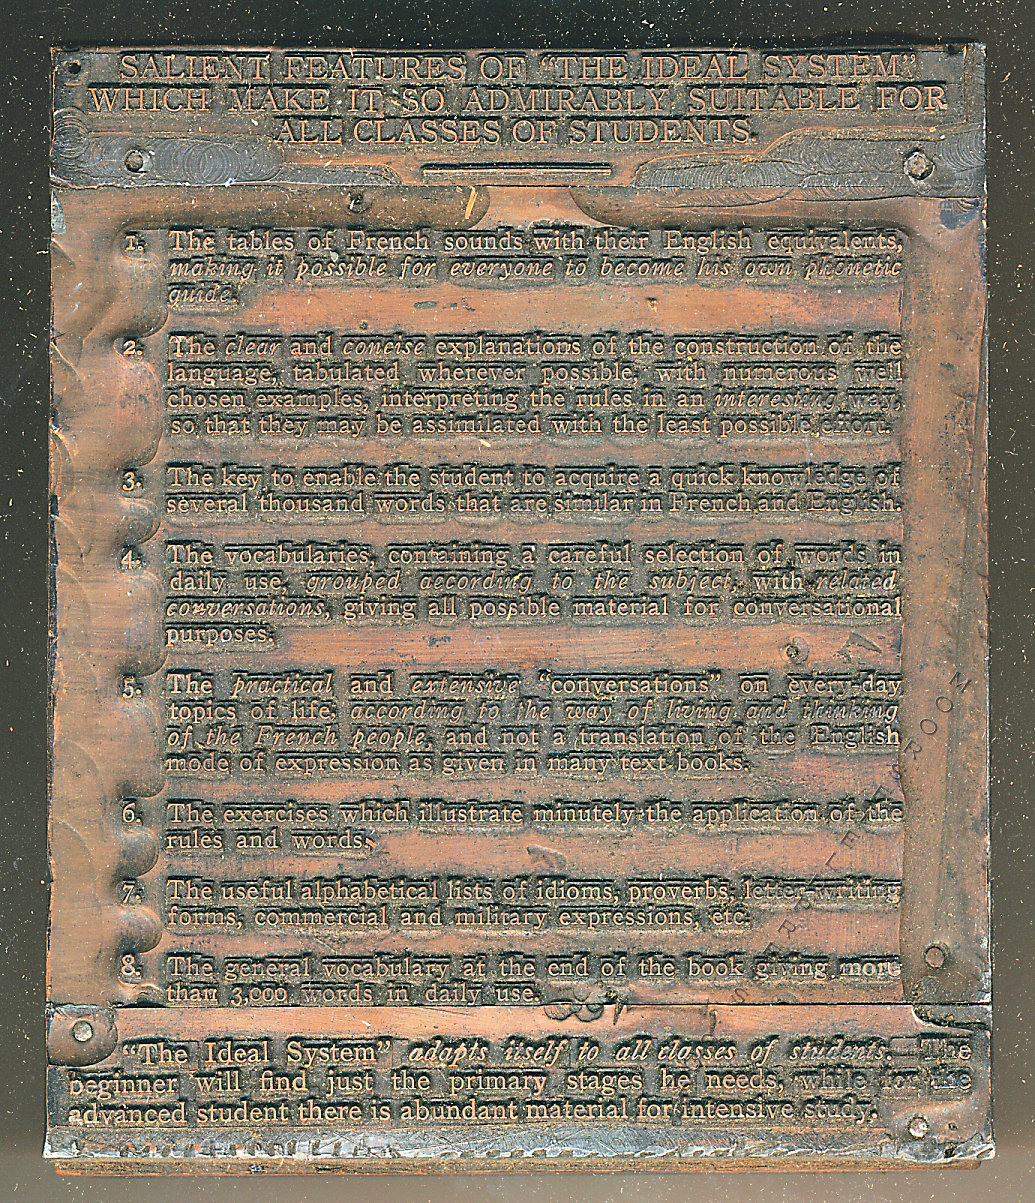 SALIENT FEATURES OF “THE IDEAL SYSTEM”
WHICH MAKE IT SO ADMIRABLY SUITABLE FOR
ALL CLASSES OF STUDENTS.
1. The tables of French sounds with their English equivalents,
making it possible for everyone to become his own phonetic
guide.
2. The clear and concise explanations of the construction of the
language, tabulated wherever possible, with numerous well
chosen examples, interpreting the rules in an interesting way,
so that they may be assimilated with the least possible effort.
3. The key to enable the student to acquire a quick knowledge of
several thousand words that are similar in French and English.
4. The vocabularies, containing a careful selection of words in
daily use, grouped according to the subject, with related
conversations, giving all possible material for conversational
purposes.
5. The practical and extensive “conversations” on every-day
topics of life, according to the way of living and thinking
of the French people, and not a translation of the English
mode of expression as given in many text books.
6. The exercises which illustrate minutely the application of the
rules and words.
7. The useful alphabetical lists of idioms, proverbs, letter-writing
forms, commercial and military expressions, etc.
8. The general vocabulary at the end of the book giving more
than 3,000 words in daily use.
“The Ideal System” adapts itself to all classes of students. The
beginner will find just the primary stages he needs, while for the
advanced student there is abundant material for intensive study.